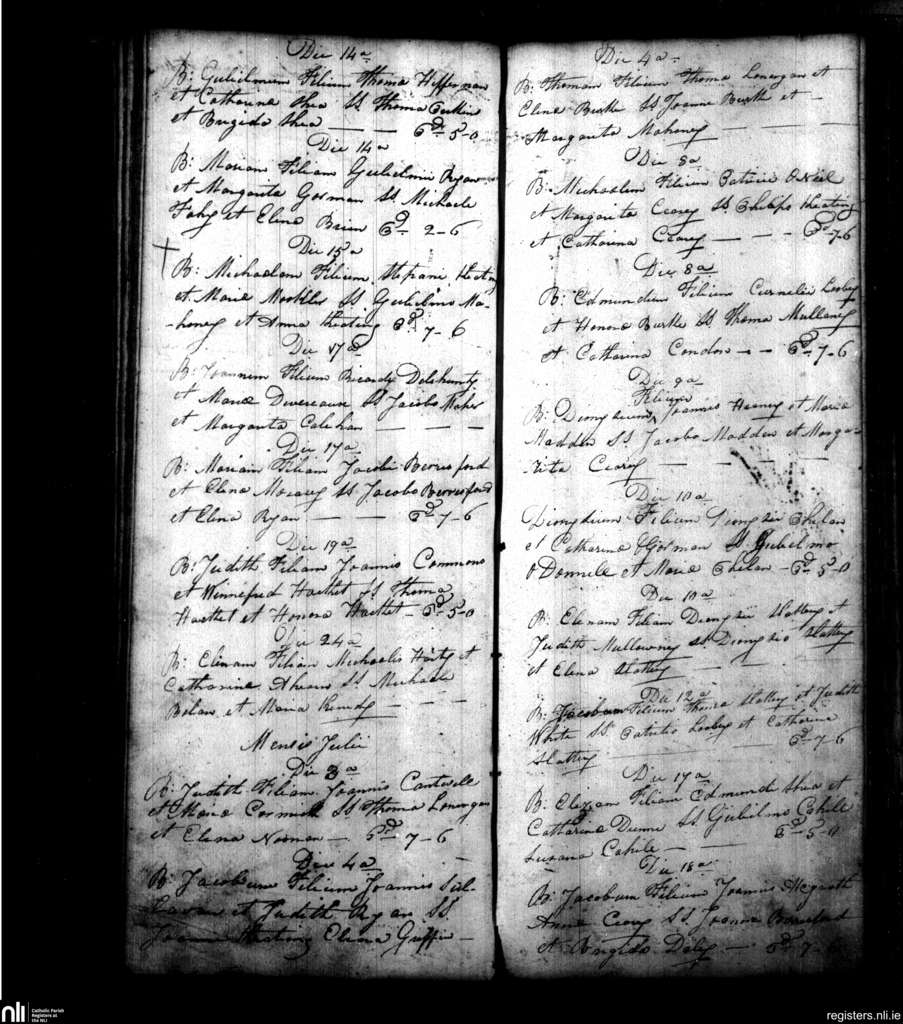 Die 14a
B: Gulielmum Filium Thoma Heffernan
et Catharina Shea SS Thoma
et Brigida Shea — — — Pd 5-0
Die 14a
B: Mariam Filiam Gulielmi Ryan
et Margarita Gorman SS Michaele
Fahy et Elena Brien Pd 2-6
Die 15a
B: Michaelem Filium Stephani Keating
et Maria Mockler SS Gulielmo Ma-
-honey et Anna Keating Pd 7-6
Die 17a
B: Joannem Filium Ricardi Delehunty
et Maria Devereaux SS Jacobo Maher
et Margarita Calahan — — —
Die 17a
B: Mariam Filiam Jacobi Berresford
et Elena SS Jacobo Berresford
et Elena Ryan — — Pd 7-6
Die 19a
B: Judith Filiam Joannis Commons
et Winnefred Hacket SS Thoma
Hacket et Honora Hacket — Pd 5-0
Die 24a
B: Elenam Filiam Michaelis Harty et
Catharina Ahearn SS Michaele
et Maria Kennedy — — —
Mensis Julii
Die 3a
B: Judith Filiam Joannis Cantwele
et Maria Cormick SS Thoma Lonergan
et Elena Noonan — Pd 7-6
Die 4a
B: Jacobum Filium Joannis Sul-
-leavan et Judith Ryan SS
Joanne Keating Elena Griffin —
Die 4a
B: Thomam Filium Thoma Lonergan et
Elena Burke SS Joanne Burke et —
Margarita Mahoney — — —
Die 8a
B: Michaelem Filium Patricii O Neil
et Margarita Creary SS Philipo Keating
et Catharina Creary — — — Pd 7-6
Die 8a
B: Edmundum Filium Cornelii Looby
et Honora Burke SS Thoma Mullaney
et Catharina Condon — — Pd 7-6
Die 9a
Filium
B: Dionysium Joannis Heaney et Maria
Madden SS Jacobo Madden et Marga-
-rita Creary — — — —
Die 10a
Dionysium Filium Dionysii Phelan
et Catharina O Gorman SS Gulielmo
O Donnele et Maria Phelan — Pd 5-0
Die 10a
B: Elenam Filiam Dionysii Slattery et
Judith Mullowney SS Dionysio Slattery
et Elena Slattery — — —
Die 12a
B: Jacobum Filium Thoma Slattery et Judith
White SS Patricio Looby et Catharina
Slattery — — — Pd 7-6
Die 17a
B: Elizam Filiam Edmundi Shea et
Catharina Dunne SS Gulielmo Cahile
Susana Cahile — — Pd 5-0
Die 18a
B: Jacobum Filium Joannis Mcgrath
Anna Creary SS Joanne Berresford
et Brigida Daley — Pd 7-6
nli
Catholic Parish
Registers at
the NLI
registers.nli.ie